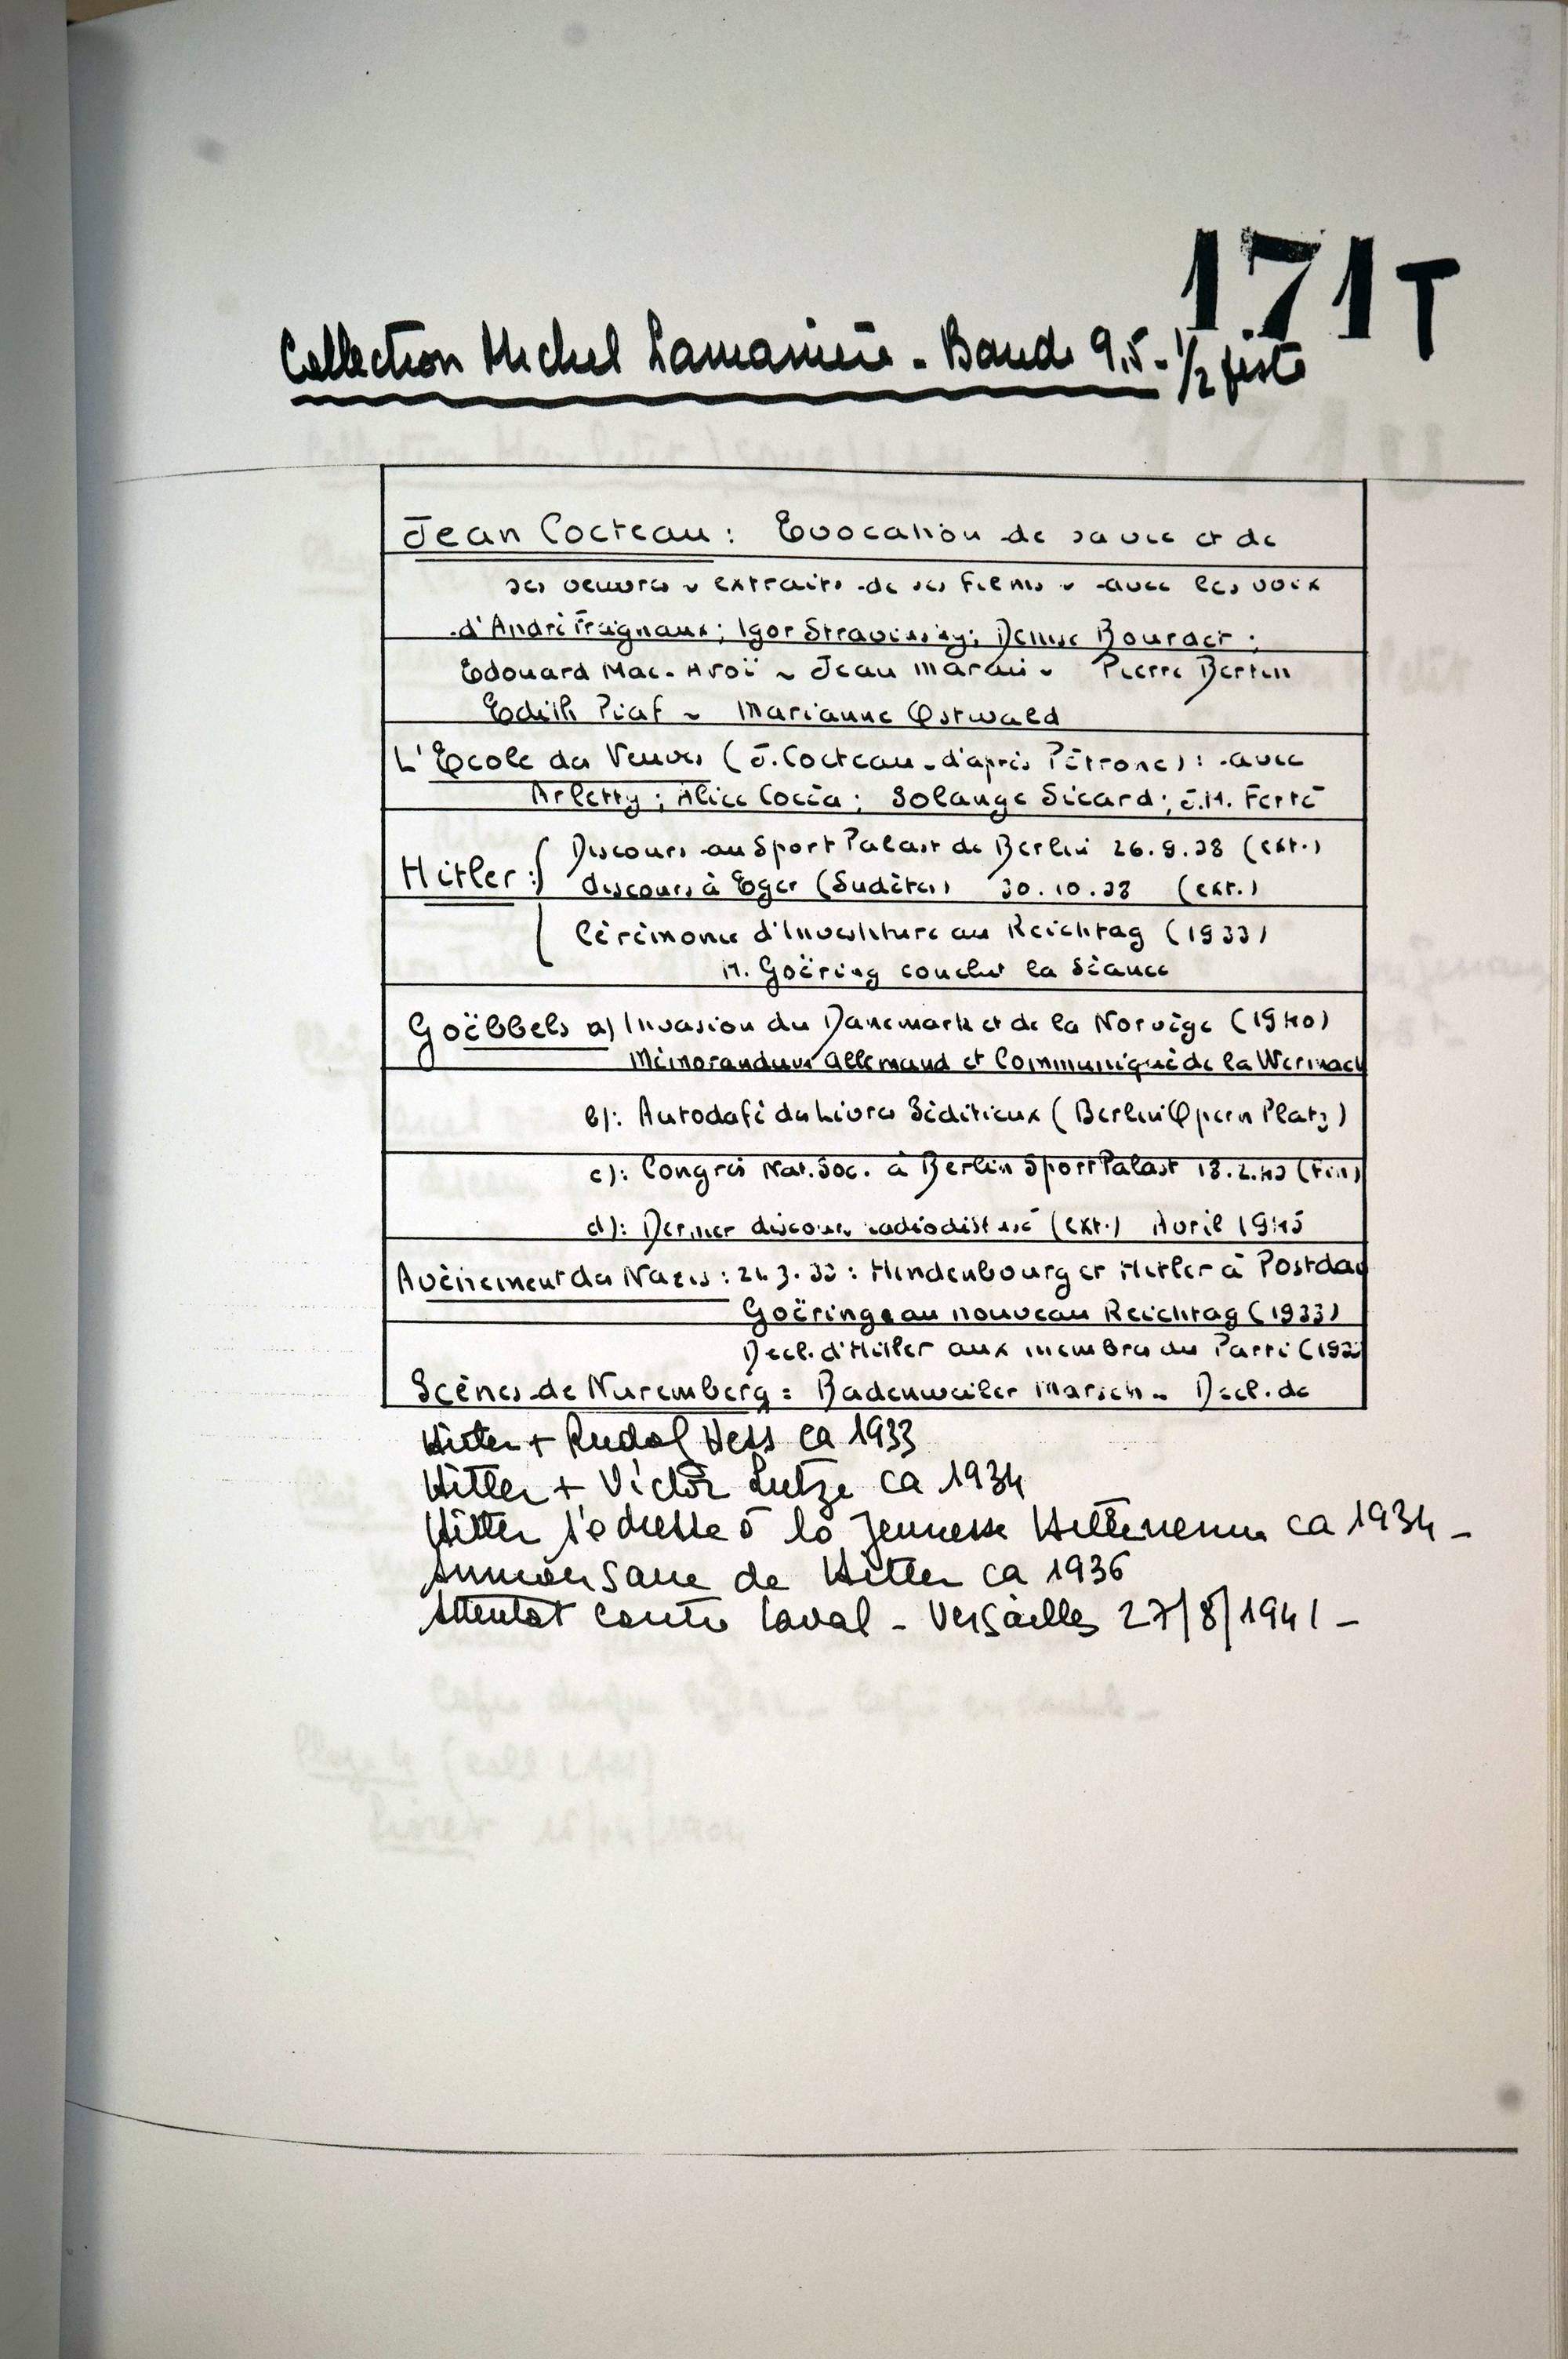 171T
Collection Michel Lamasinière - Bande 9,5 - 1/2 piste
Jean Cocteau : Evocation de sa vie et de
ses oeuvres ~ extraits de ses films ~ avec les voix
d'André Fraignaux ; Igor Stravinsky ; Denise Bourdet ;
Edouard Mac-Avoï ~ Jean Marais ~ Pierre Bertin
Edith Piaf ~ Marianne Ostwald
L'Ecole des Veuves (J. Cocteau - d'après Pétrone) : avec
Arletty ; Alice Cocéa ; Solange Sicard ; J.M. Ferté
Hitler : { Discours au Sport Palast de Berlin 26.9.38 (ext.)
discours à Eger (Sudètes) 30.10.38 (ext.)
Cérémonie d'Investiture au Reichtag (1933)
H. Goëring conclut la Séance
Goëbbels a) Invasion du Danemark et de la Norvège (1940)
Mémorandum Allemand et Communiqué de la Wermach
b) : Autodafé des Livres Séditieux (Berlin Opern Platz)
c) : Congrès Nat. Soc. à Berlin Sport Palast 18.2.43 (Fin)
d) : Dernier discours radiodiffusé (ext.) Avril 1945
Avènement des Nazis : 21.3.33 : Hindenbourg et Hitler à Postdam
Goëring au nouveau Reichtag (1933)
Decl. d'Hitler aux membres du Parti (193
Scènes de Nuremberg = Badenweiler Marsch - Decl. de
Hitler + Rudolf Hess ca 1933
Hitler + Victor Lutze ca 1934
Hitler s'adresse à la Jeunesse Hitlérienne ca 1934 -
Anniversaire de Hitler ca 1936
Attentat contre Laval - Versailles 27/8/1941 -